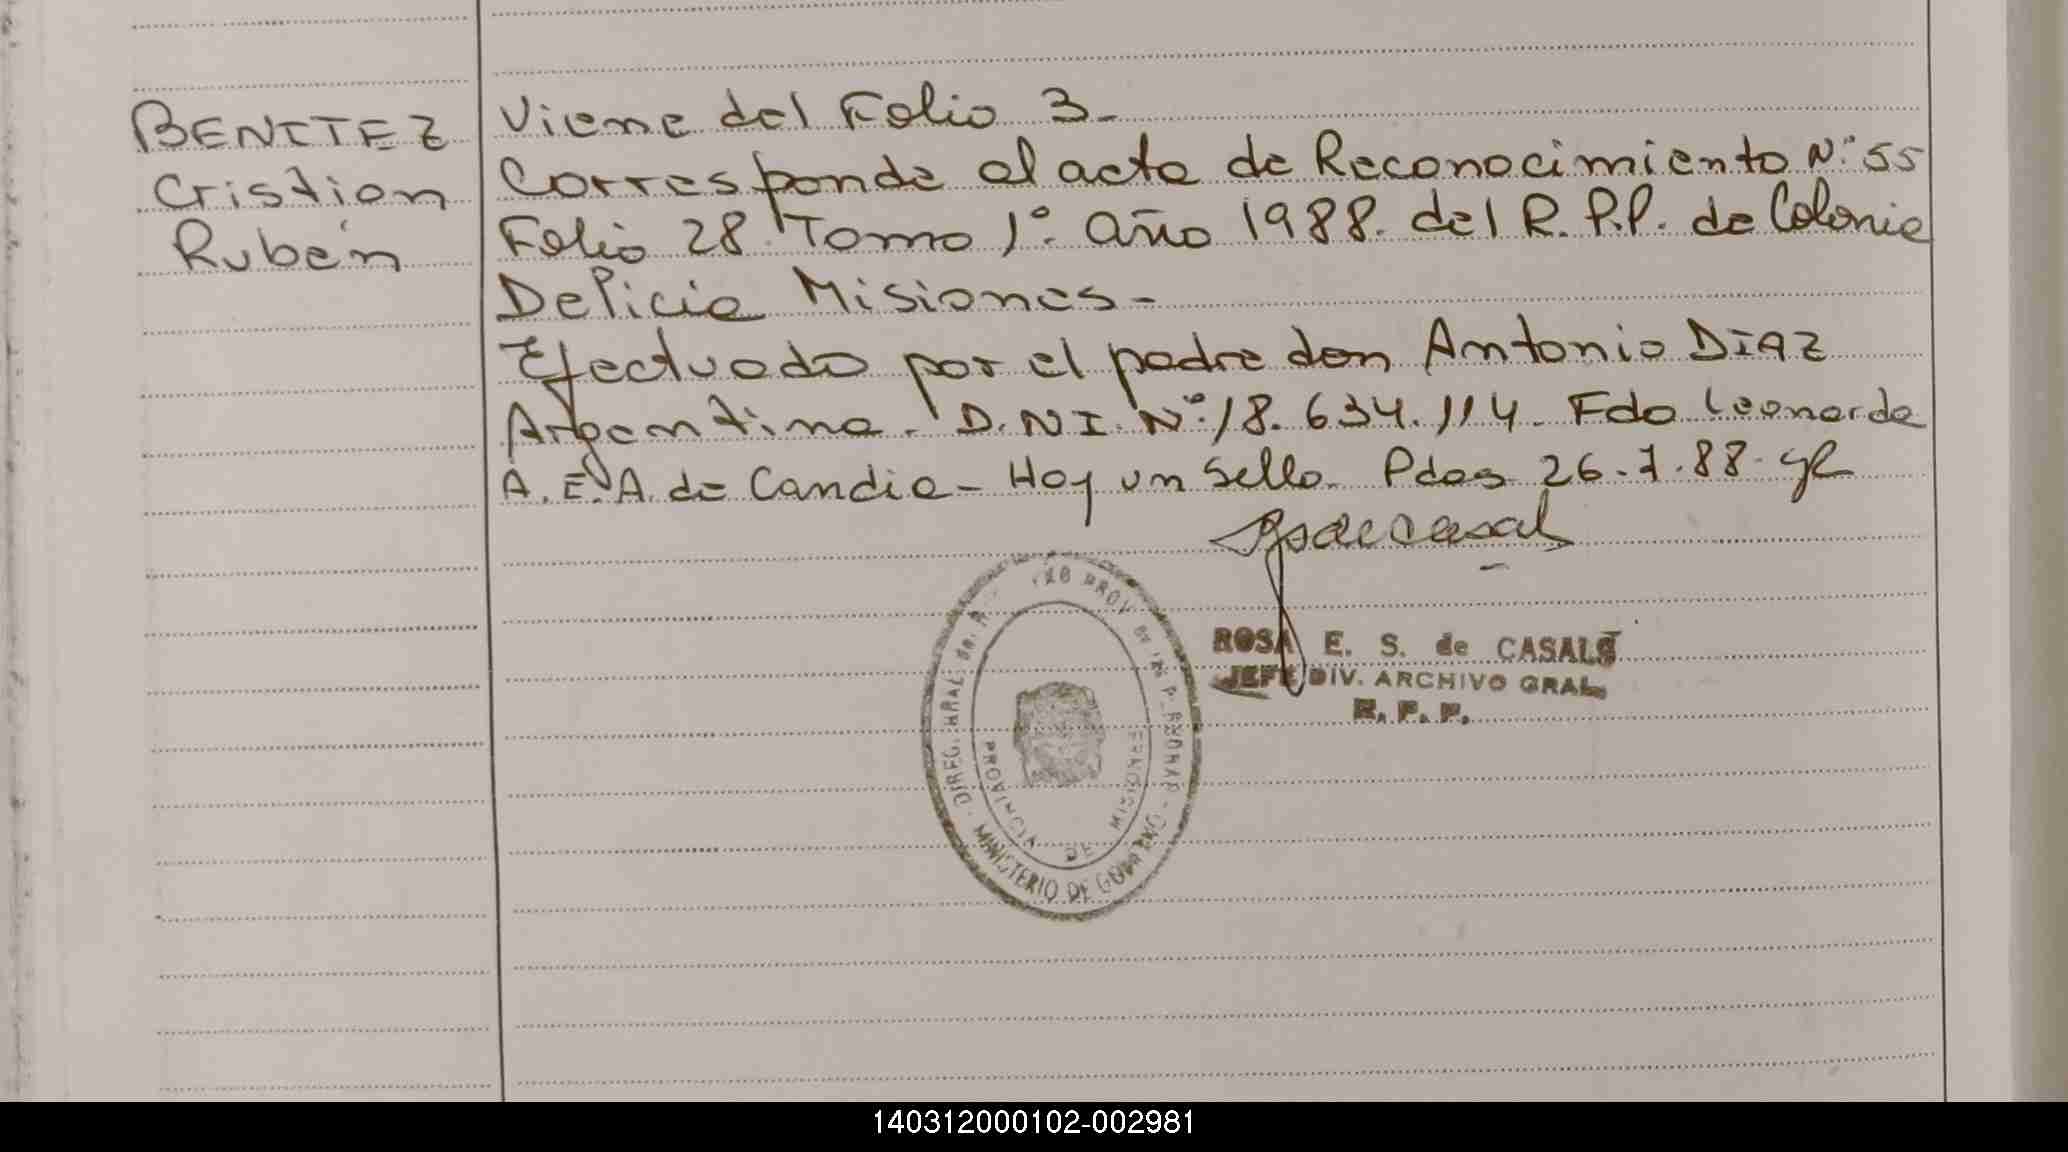 BENITEZ
Cristian
Rubén
Viene del Folio 3.-
Corresponde al acta de Reconocimiento N° 55
Folio 28. Tomo 1°. Año 1988. del R.P.P. de Colonia
Delicia Misiones -
Efectuado por el padre don Antonio DIAZ
Argentino. D.N.I. N° 18.634.114. Fdo Leonarda
A.E.A. de Candia - Hay un sello. Pdas 26-7-88-
ROSA E. S. de CASALS
JEFE DIV. ARCHIVO GRAL.
R. P. P.
DIREC. GRAL. DEL
PROV. DE LAS PERSONAS
MINISTERIO DE GOBIERNO
PROVINCIA DE MISIONES
140312000102-002981